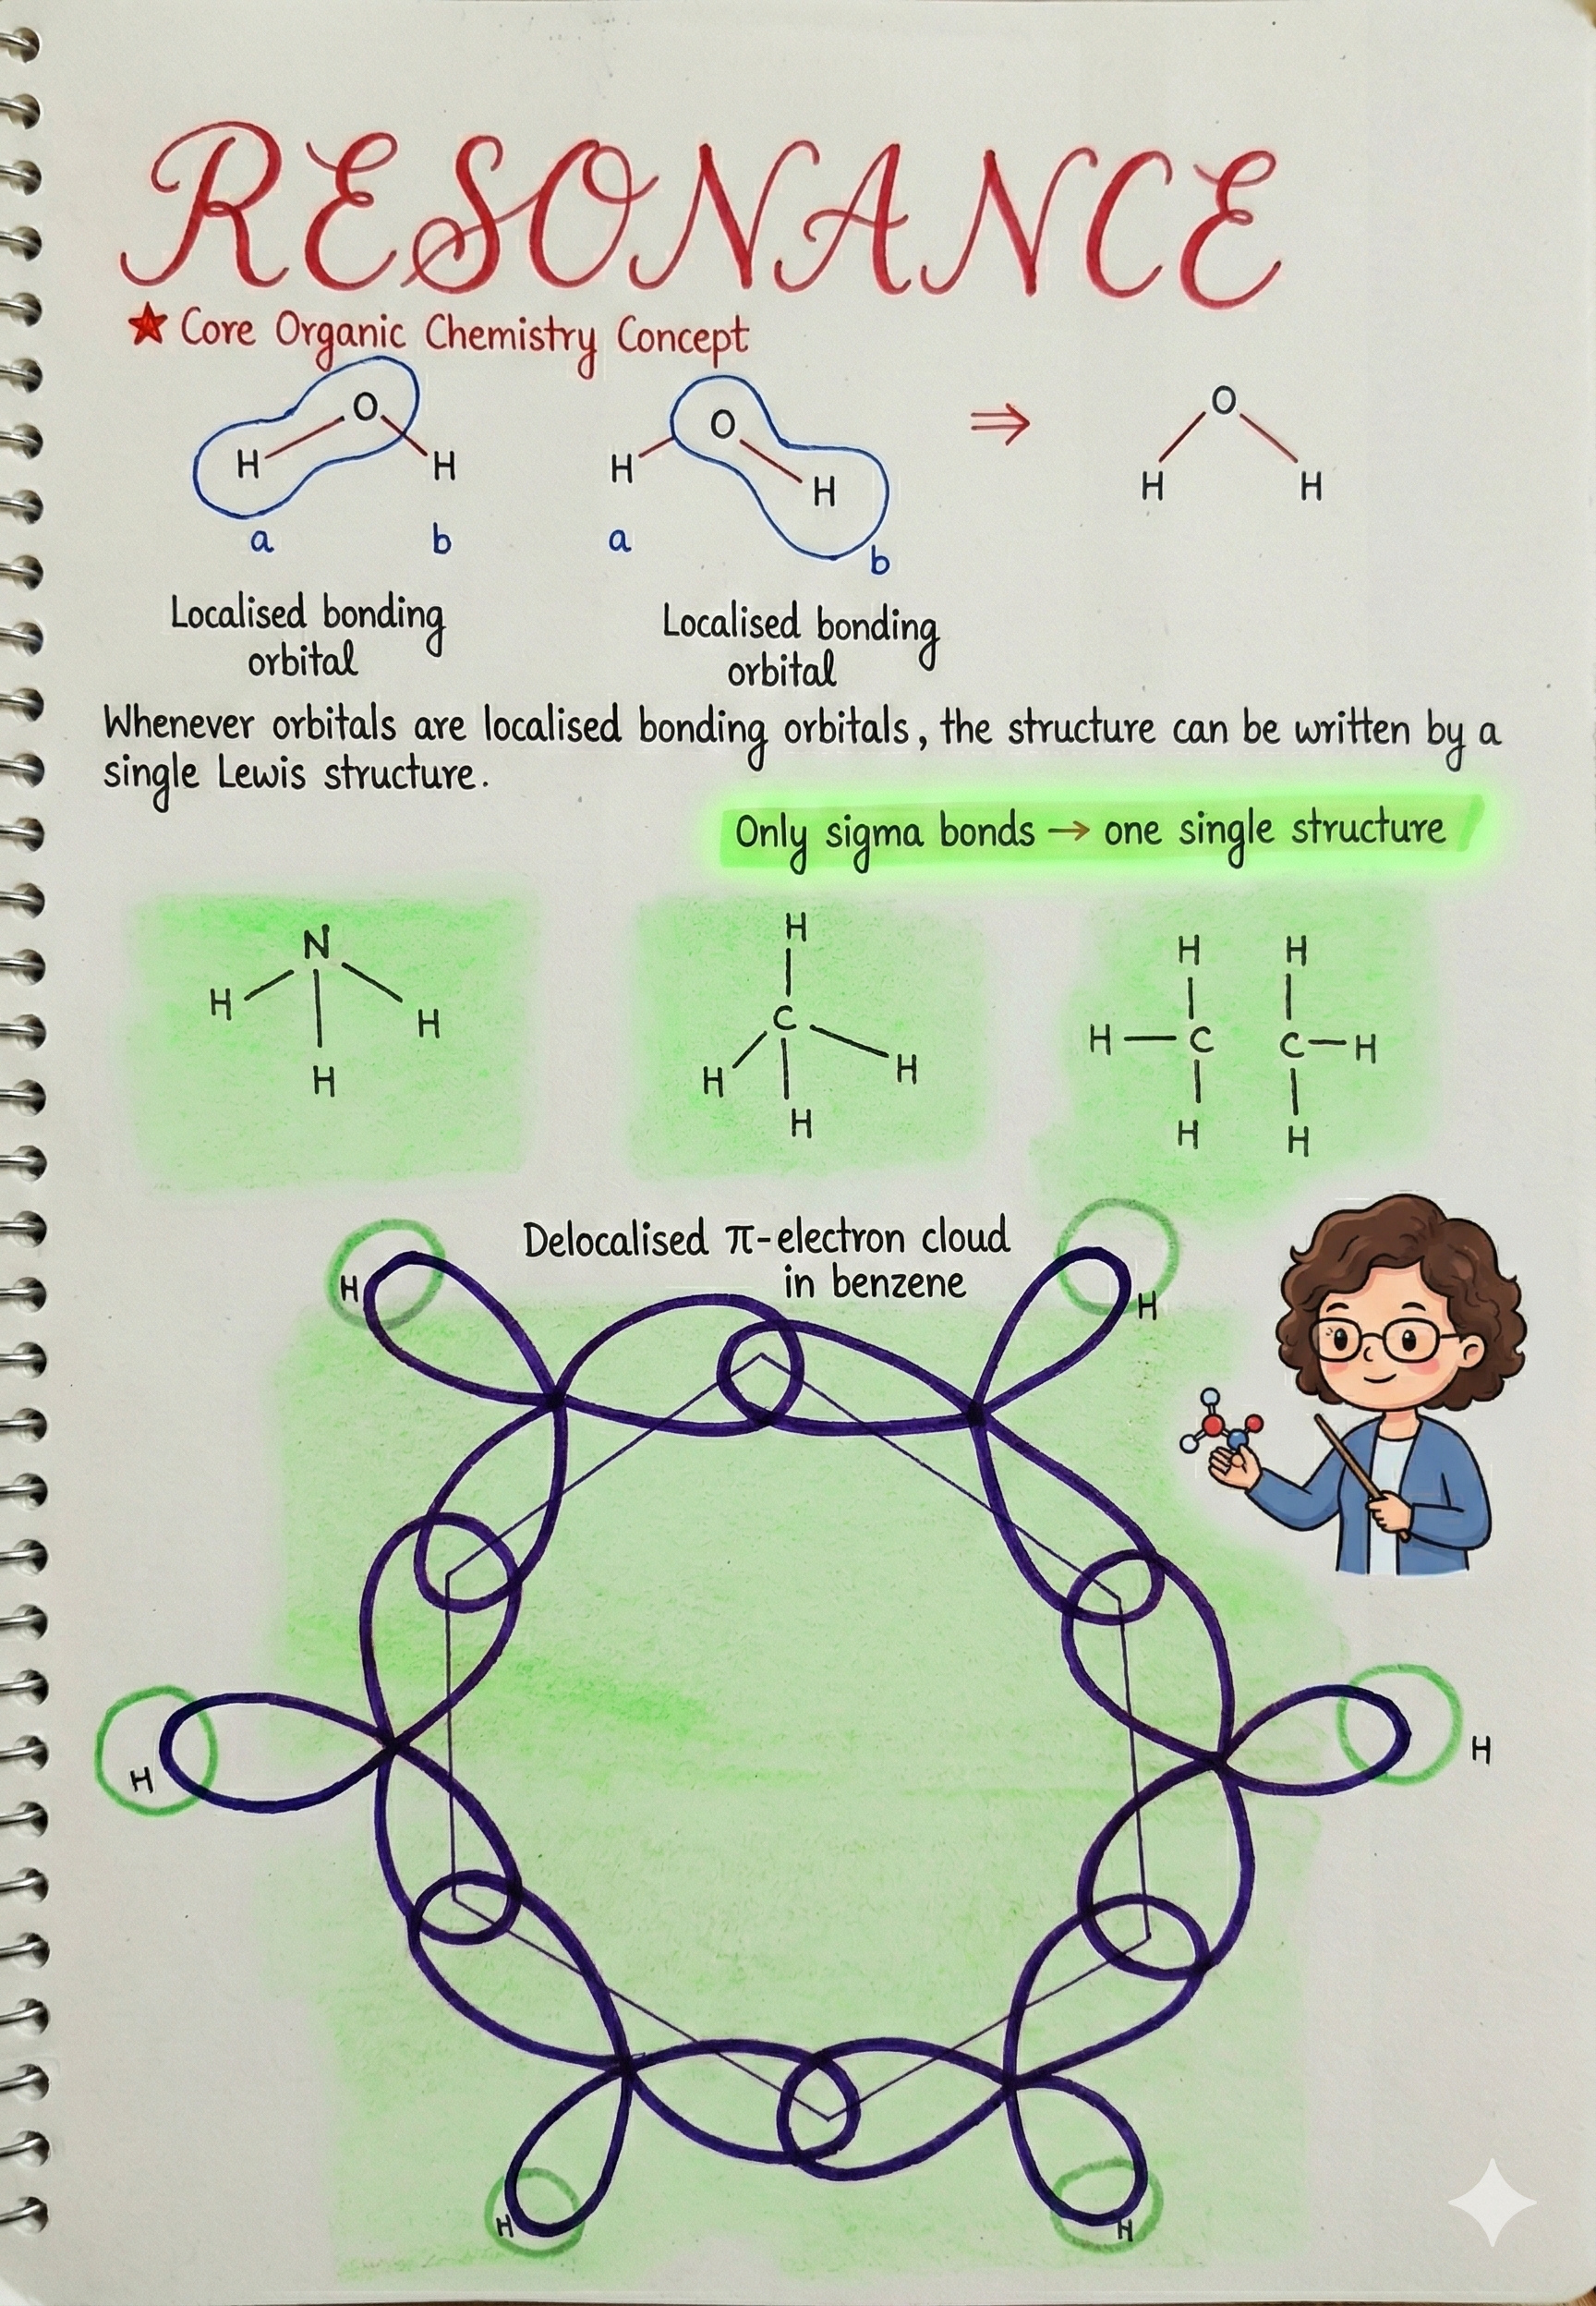 RESONANCE
★ Core Organic Chemistry Concept
O
H H
a b
O
H H
a b
⇒
O
H H
Localised bonding
orbital
Localised bonding
orbital
Whenever orbitals are localised bonding orbitals, the structure can be written by a
single Lewis structure.
Only sigma bonds → one single structure
N
H H
H
H
C
H H
H
H H
H C C H
H H
Delocalised π-electron cloud
in benzene
H H
H H
H H